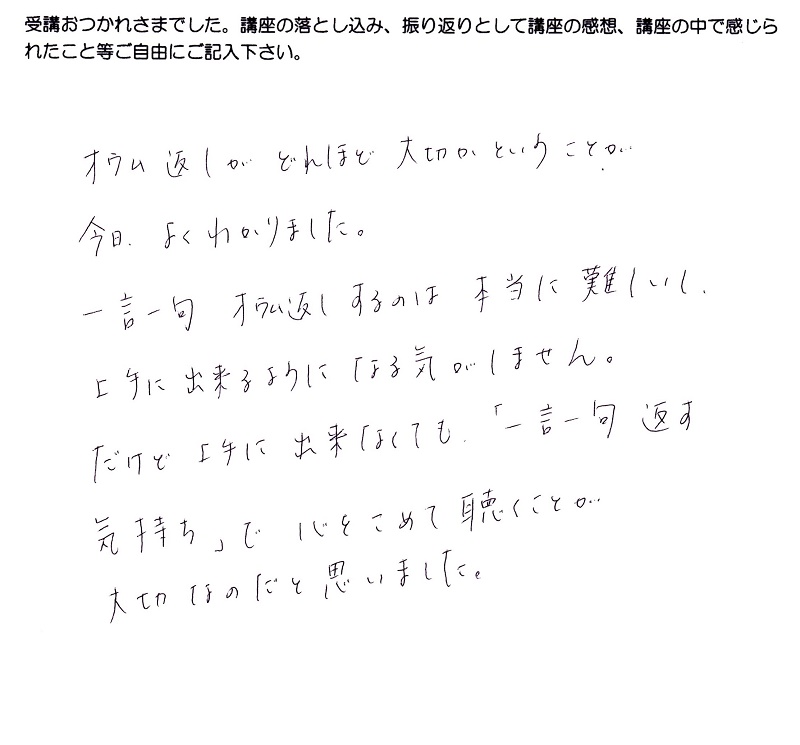 受講おつかれさまでした。講座の落とし込み、振り返りとして講座の感想、講座の中で感じら
れたこと等ご自由にご記入下さい。
オウム返しが どれほど 大切かということが
今日、よくわかりました。
一言一句 オウム返しするのは 本当に難しいし、
上手に出来るようになる気がしません。
だけど上手に出来なくても、「一言一句 返す
気持ち」で 心をこめて聴くことが
大切なのだと思いました。